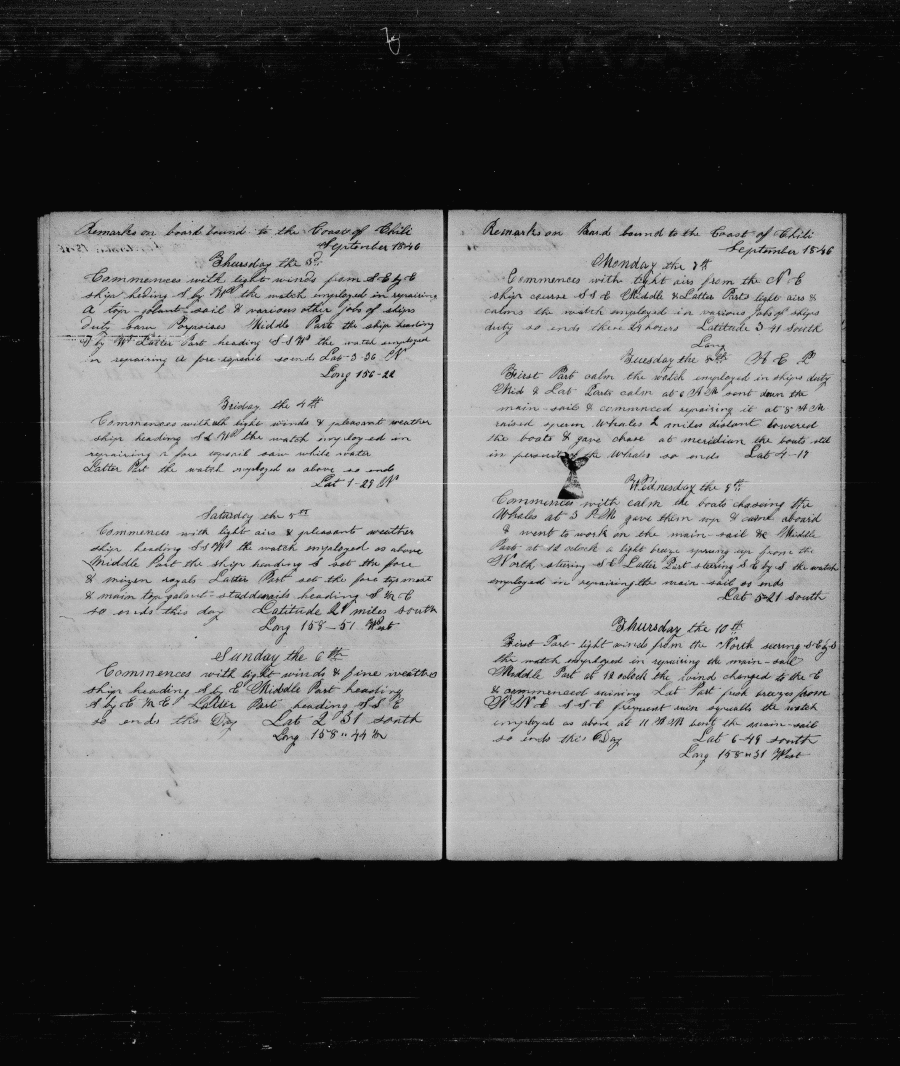 Remarks on board bound to the Coast of Chili
September 1846
Thursday the 3d
Commences with light winds from S E by E
ship heding S by W the watch employed in repairing
a top-golant-sail & various other jobs of ships
duty saw Porpoises Middle Part the ship heading
S by W Latter Part heading S S W the watch employed
in repairing a fore topsail so ends Lat 3-36 N
Long 156-22
Friday the 4th
Commences with light winds & pleasant weather
ship heading S & W the watch employed in
repairing a fore topsail saw white water
Latter Part the watch employed as above so ends
Lat 1-29 N
Saturday the 5th
Commences with light airs & pleasant weather
ship heading S S W the watch employed as above
Middle Part the ship heading S set the fore
& mizen royals Latter Part set the fore topmast
& main top galant-studdensails heading S E
so ends this day Latitude 29 miles south
Long 158-51 West
Sunday the 6th
Commences with light winds & fine weather
ship heading S by E Middle Part heading
S by E & E Latter Part heading S S E
so ends this Day Lat 2 31 south
Long 158"44 W
Remarks on Board bound to the Coast of Chili
September 1846
Monday the 7th
Commences with light airs from the N E
ship course S S E Middle & Latter Parts light airs &
calms the watch employed in various jobs of ships
duty so ends these 24 hours Latitude 3-41 South
Long
Tuesday the 8th A E P
First Part calm the watch employed in ships duty
Mid & Lat Parts calm at 6 AM sent down the
main-sail & commenced repairing it at 8 AM
raised sperm Whales 2 miles distant lowered
the boats & gave chase at meridian the boats still
in persuit of the Whales so ends Lat 4-17
Wednesday the 9th
Commences with calm the boats chaseing the
Whales at 3 P M gave them up & came aboard
& went to work on the main-sail &c Middle
Part at 12 oclock a light breze sprung up from the
North steering S E Latter Part steering S E by S the watch
employed in repairing the main-sail so ends
Lat 5-21 south
Thursday the 10th
First Part light winds from the North steering S E by S
the watch employed in repairing the main-sail
Middle Part at 12 oclock the wind changed to the E
& commenced raining Lat Part fresh breezes from
N N E S S E frequent rain squalls the watch
employed as above at 11 AM bent the main-sail
so ends this Day Lat 6-49 south
Long 158"31 West